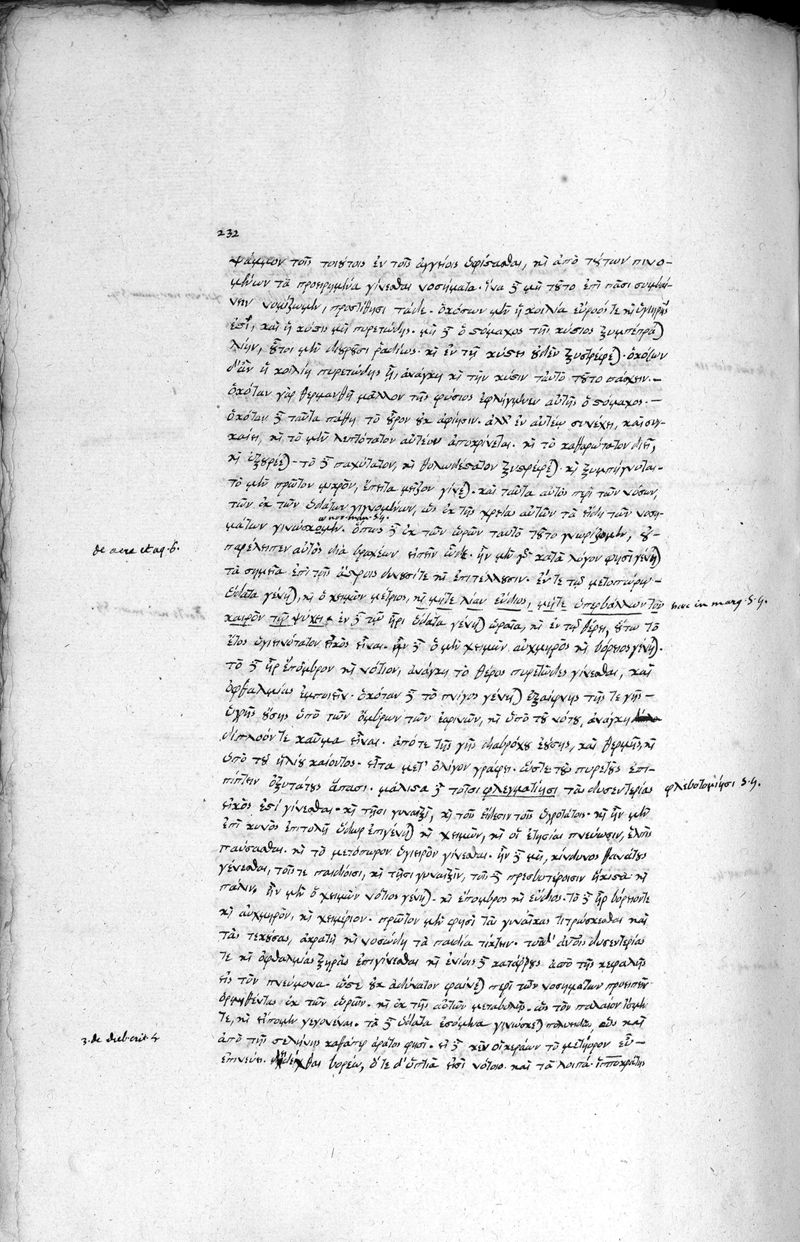 232
ψάμμον τοῖς τοιούτοις ἐν τοῖς ἀγγείοις ὑφίσασθαι, καὶ ἀπὸ τούτων πινο-
μένων τὰ προειρημένα γίνεσθαι νοσήματα. ἵνα δὲ μὴ τοῦτο ἐπὶ πᾶσι συμβαί-
νειν νομίζωμεν, προστίθησι τάδε. ὁκόσων μὲν ἡ κοιλία εὔροός τε καὶ ὑγιηρής
ἐστι, καὶ ἡ κύστις μὴ πυρετώδης. μὴ δὲ ὁ στόμαχος τῆς κύστιος ξυμπέφρακται
λίην, οὗτοι μὲν διουροῦσι ῥᾳδίως. καὶ ἐν τῇ κύστει οὐδὲν ξυστρέφεται. ὁκόσων
δ' ἂν ἡ κοιλίη πυρετώδης ᾖ, ἀνάγκη καὶ τὴν κύστιν ταὐτὸ τοῦτο πάσχειν.-
ὁκόταν γὰρ θερμανθῇ μᾶλλον τῆς φύσιος ἐφλήγμηνεν αὐτῆς ὁ στόμαχος.-
ὁκόταν δὲ ταῦτα πάθῃ τὸ οὖρον οὐκ ἀφίησιν. ἀλλ' ἐν αὑτέῳ συνέχει, καὶ συγ-
καίει, καὶ τὸ μὲν λεπτότατον αὐτέου ἀποκρίνεται. καὶ τὸ καθαρώτατον διεῖ,
καὶ ἐξουρέεται- τὸ δὲ παχύτατον, καὶ θολωδέστατον ξυστρέφεται. καὶ ξυμπήγνυται-
τὸ μὲν πρῶτον μικρὸν, ἔπειτα μεῖζον γίνεται. καὶ ταῦτα αὐτὸς περὶ τῶν νόσων,
τῶν ἐκ τῶν ὑδάτων γιγνομένων, ὡς ἐκ τῆς χρείας αὐτῶν τὰ εἴδη τῶν νοση-
μάτων γινώσκομεν. ὅπως δὲ ἐκ τῶν ὡρῶν ταὐτὸ τοῦτο γνωρίζομεν, οὐ-
de aere et aq. 6. παρέλειπεν αὐτὸς διὰ βραχέων εἰπεῖν ὧδε. ἢν μὲν γὰρ κατὰ λόγον φησὶ γένηται
τὰ σημεῖα ἐπὶ τοῖς ἄστροις δύνουσί τε καὶ ἐπιτέλλουσιν. ἔν τε τῷ μετοπώρῳ
ὕδατα γένηται, καὶ ὁ χειμὼν μέτριος, καὶ μήτε λίαν εὔδιος, μήτε ὑπερβάλλων τὸν sive in marg. 54.
καιρὸν τῷ ψύχει ἐν δὲ τῷ ἦρι ὕδατα γένηται ὡραῖα, καὶ ἐν τῷ θέρει, οὕτω τὸ
ἔτος ὑγιεινότατον εἰκὸς εἶναι. ἢν δὲ ὁ μὲν χειμὼν αὐχμηρὸς καὶ βόρειος γένηται.
τὸ δὲ ἦρ ἔπομβρον καὶ νότιον, ἀνάγκη τὸ θέρος πυρετῶδες γίνεσθαι, καὶ
ὀφθαλμίας ἐμποιεῖν. ὁκόταν δὲ τὸ πνῖγος γένηται ἐξαίφνης τῆς τε γῆς-
ὑγρῆς οὔσης ὑπὸ τῶν ὄμβρων τῶν ἐαρινῶν, καὶ ὑπὸ τοῦ νότου, ἀνάγκη
διπλόον τε καῦμα εἶναι. ἀπό τε τῆς γῆς διαβρόχου ἐούσης, καὶ θερμῆς, καὶ
ὑπὸ τοῦ ἡλίου καίοντος. εἶτα μετ' ὀλίγον γράφει. ὥστε τοὺς πυρετοὺς ἐπι-
πίπτειν ὀξυτάτους ἅπασι. μάλιστα δὲ τοῖσι φλεγματίῃσι τὰς δυσεντερίας φλεβοτομίῃσι 54.
εἰκός ἐστι γίνεσθαι. καὶ τῇσι γυναιξὶ, καὶ τοῖς εἴδεσιν τοῖς ὑγροτάτοις. καὶ ἢν μὲν
ἐπὶ κυνὸς ἐπιτολῇ ὕδωρ ἐπιγένηται καὶ χειμὼν, καὶ οἱ ἐτησίαι πνεύσωσιν, ἐλπὶς
παύσασθαι. καὶ τὸ μετόπωρον ὑγιηρὸν γίνεσθαι. ἢν δὲ μὴ, κίνδυνος θανάτους
γενέσθαι, τοῖς τε παιδίοισι, καὶ τῇσι γυναιξὶν, τοῖς δὲ πρεσβυτέροισιν ἥκιστα καὶ
πάλιν, ἢν μὲν ὁ χειμὼν νότιος γένηται. καὶ ἔπομβρος καὶ εὔδιος. τὸ δὲ ἦρ βόρειόν τε
καὶ αὐχμηρὸν, καὶ χειμέριον. πρῶτον μὲν φησὶ τὰς γυναῖκας τιτρώσκεσθαι καὶ
τὰς τεκούσας, ἀκρατῆ καὶ νοσώδη τὰ παιδία τίκτειν. τοῖς δ' αὐτοῖς δυσεντερίας
τε καὶ ὀφθαλμίας ξηρὰς ἐπιγίνεσθαι καὶ ἐνίοις δὲ κατάῤῥους ἀπὸ τῆς κεφαλῆς
εἰς τὸν πνεύμονα. ὥστε οὐκ ἀδύνατον φαίνεται περὶ τῶν νοσημάτων προειπεῖν
ὁρμηθέντας ἐκ τῶν ὡρῶν. καὶ ἐκ τῆς αὐτῶν μεταβολῆς.
3. de dieb. crit. 4 τε, καὶ εἴπομεν γεγονέναι. τὰ δὲ ὕδατα ἐσόμενα γινώσκεται καὶ
ἀπὸ τῆς σελήνης καθάπερ ἄρατος φησὶ. εἰ δέ κεν οἱ κεράων τὸ μετήορον εὖ-
ἐπινεύῃ. βορέω, ὅτε δ' ὑπτιά εἰσι νότοιο. καὶ τὰ λοιπὰ. ἱπποκράτης